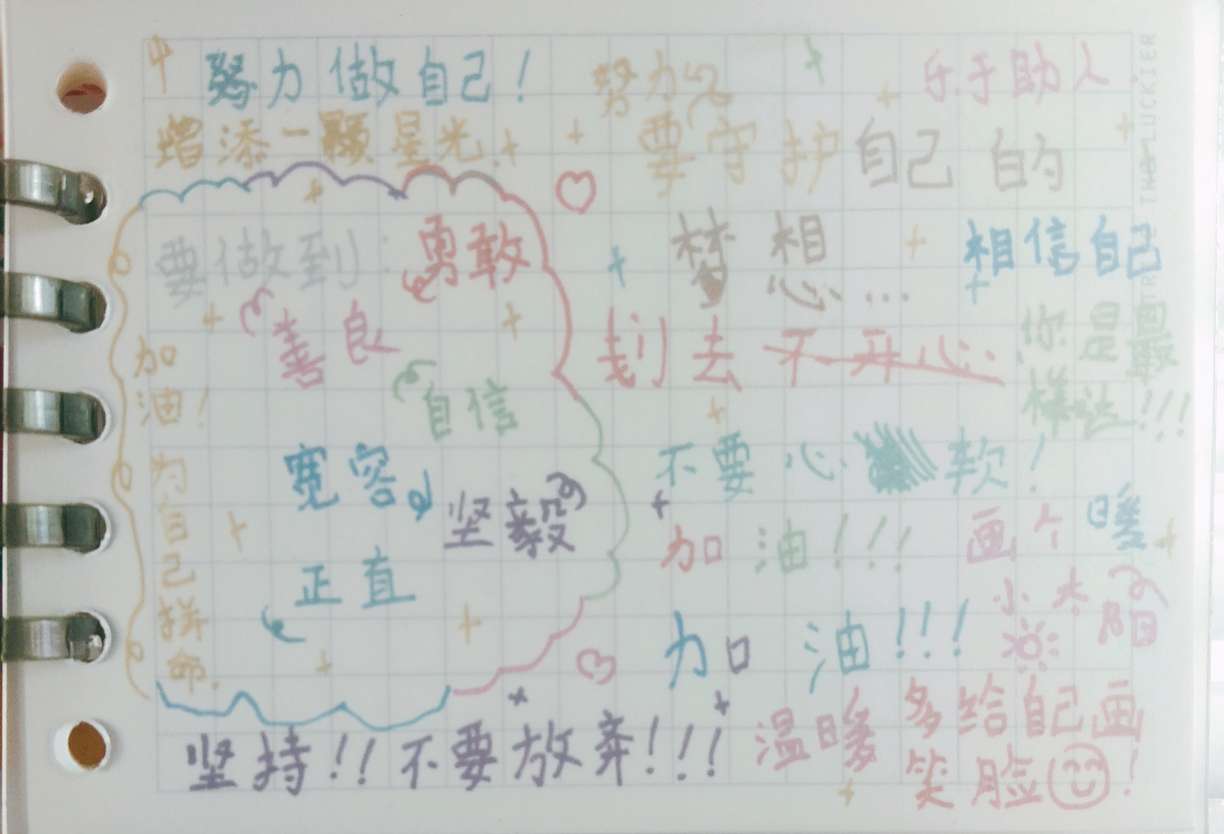 努力做自己！
增添一颗星光
要做到：勇敢
善良
自信
宽容
坚毅
正直
加油！
为自己拼命.
坚持!! 不要放弃!!!
努力
要守护自己的
梦想...
划去不开心
不要心软！
加油!!!
加油!!!
乐于助人
相信自己
你是最
棒哒!!!
画个暖
小太
温暖
多给自己画
笑脸！
THE LUCKIER